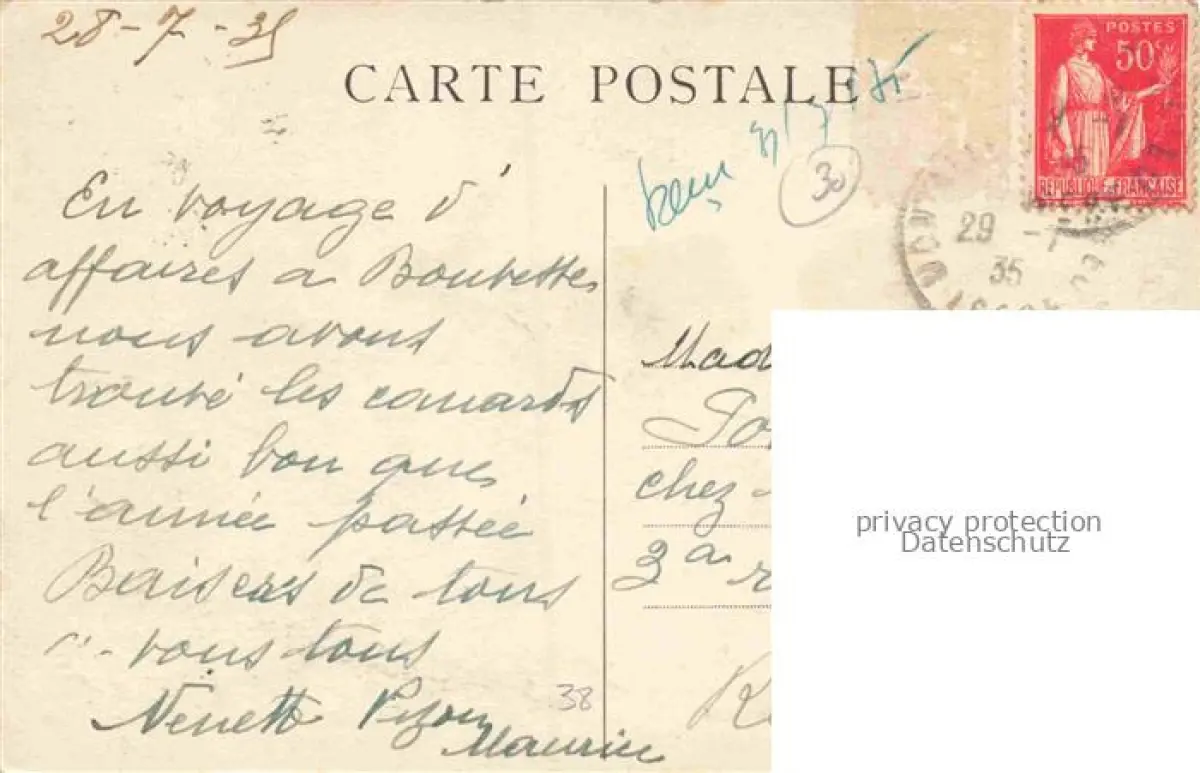 28-7-35
CARTE POSTALE
POSTES
50c
RÉPUBLIQUE FRANÇAISE
29 -7
35
30
En voyage d'
affaires a Boubette
nous avons
trouvé les canards
aussi bon que
l'année passée
Baisers de tous
a vous tous
Nenette Pizon
Maurice
38
Mad
chez
3a r
privacy protection
Datenschutz